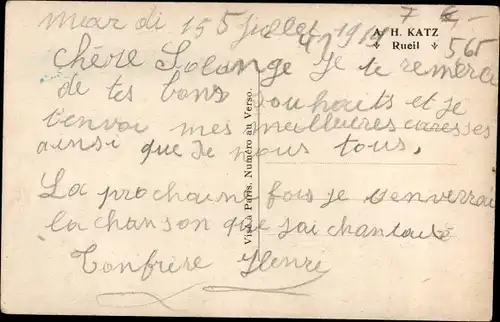 mardi 15 Juillet 1919
A. H. KATZ
Rueil
565
Chère Solange Je te remerci
de tes bons souhaits et je
t'envoi mes meilleures caresses
ainsi que de nous tous.
La prochaine fois je t'enverrai
la chanson que j'ai chantait
Ton frère Henri
Visé à Paris. Numéro au Verso.